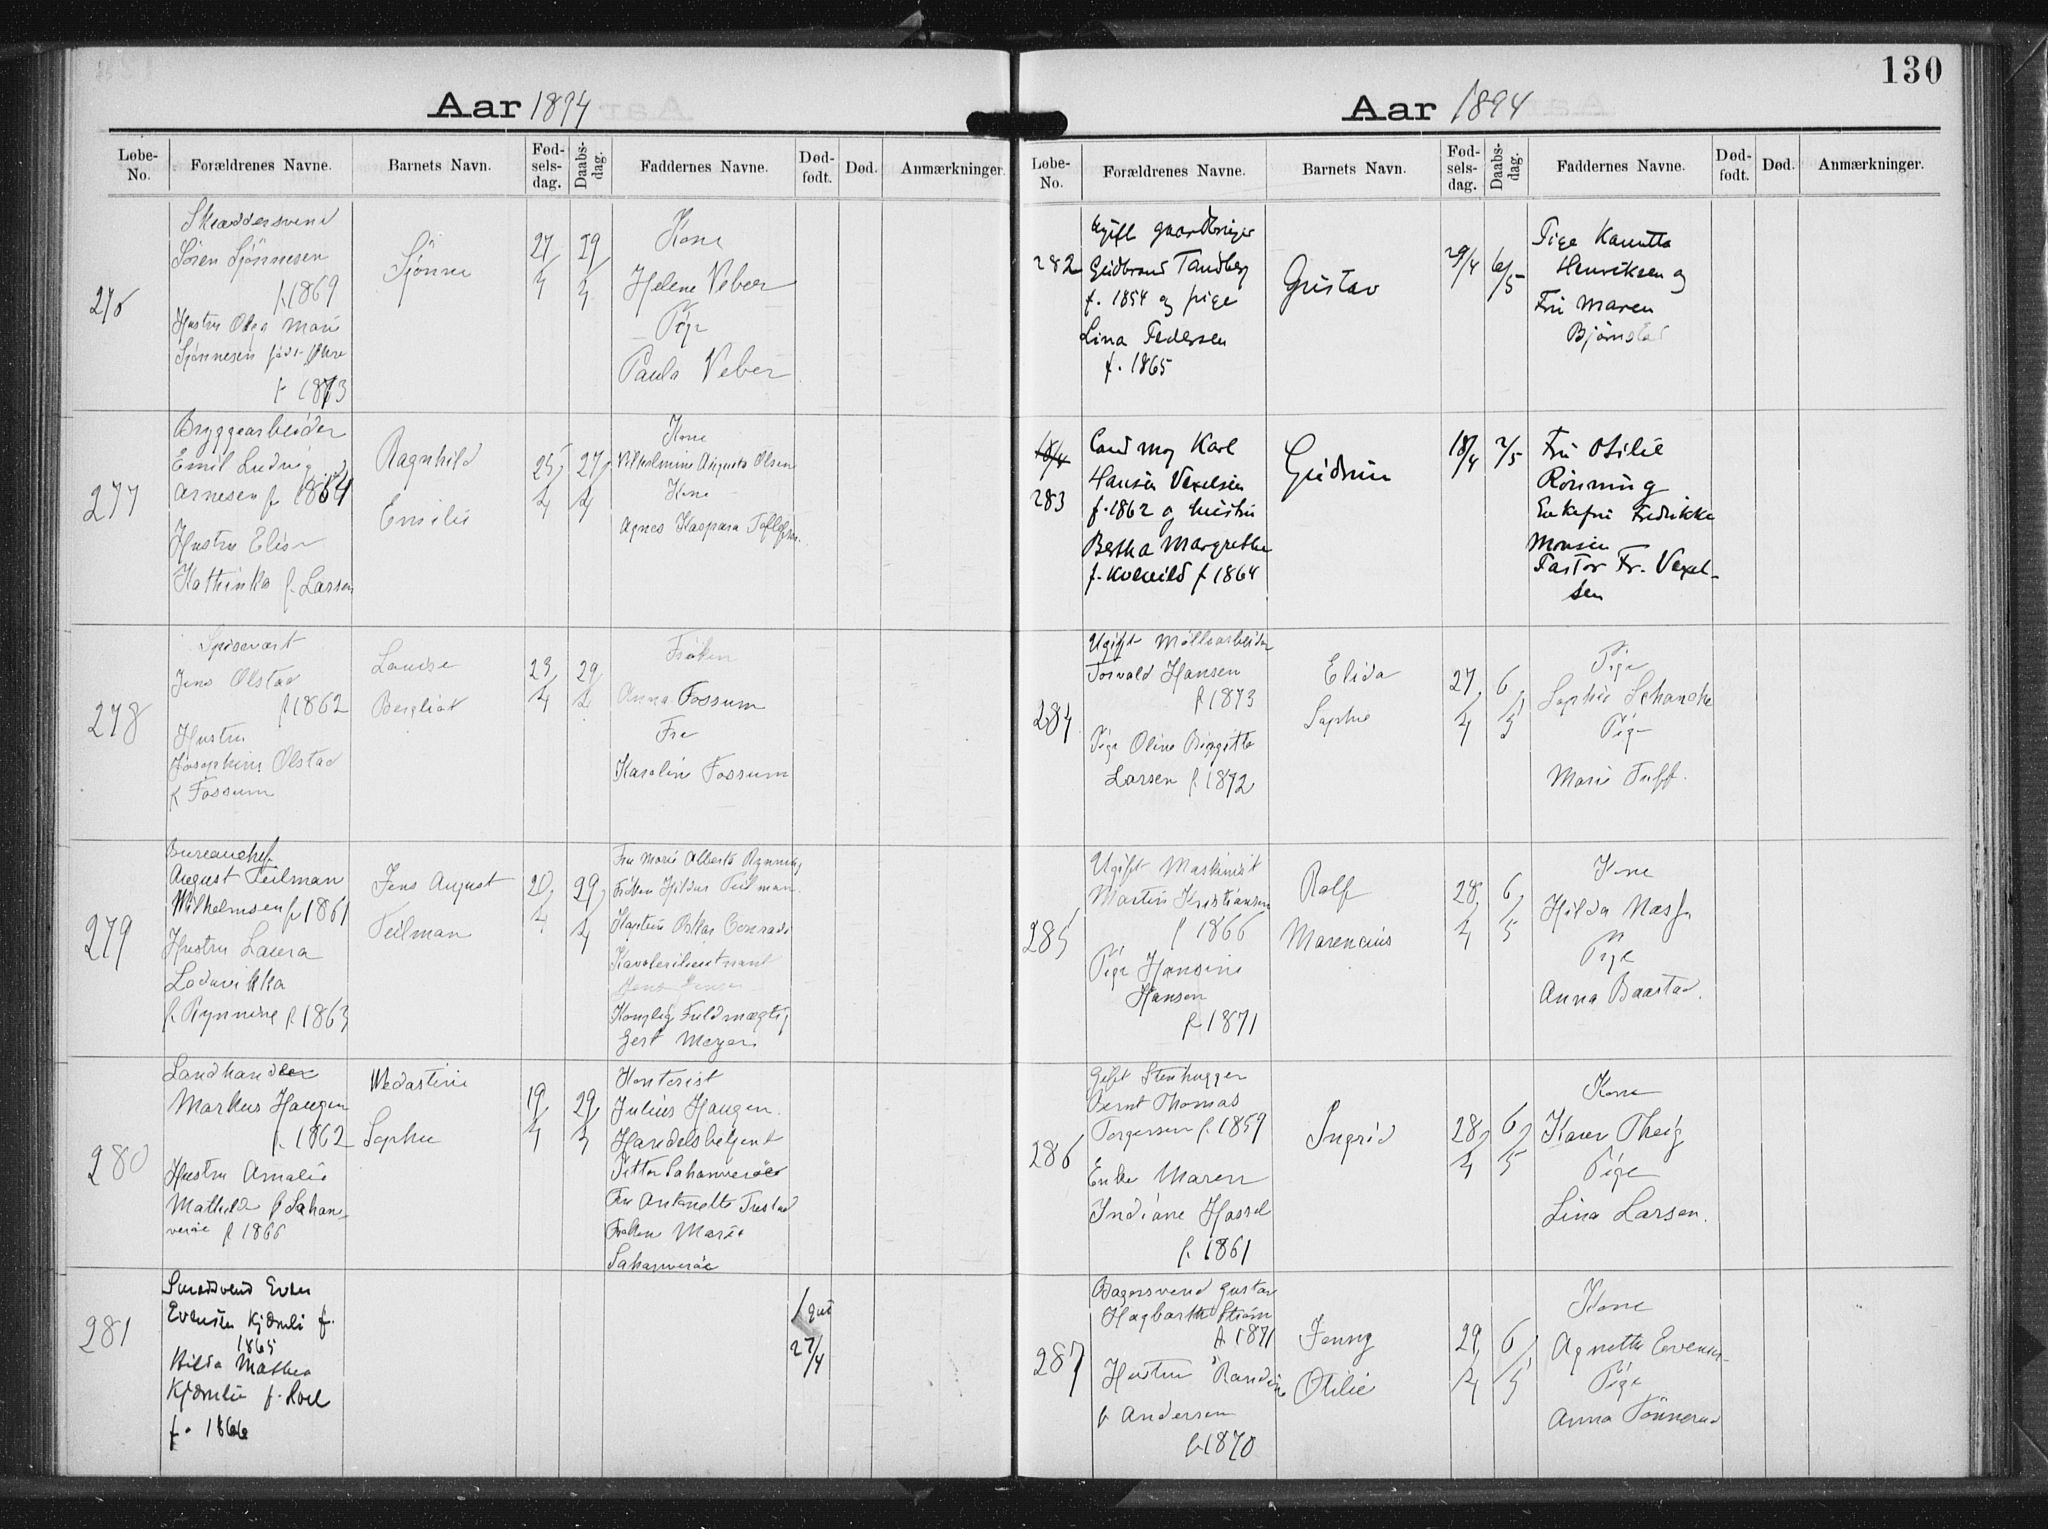 Aar 1894
Løbe-No. Forældrenes Navne. Barnets Navn. Fød-sels-dag. Daabs-dag. Faddernes Navne. Død-født. Død. Anmærkninger.
276
Skræddersvend
Søren Sjönnesen
f. 1869
Hustru Olga Marie
Sjönnesen
f 1873
Sjönne
27/4
29/4
Kone
Helene Veber
Pige
Paula Veber
277
Bryggearbeider
Emil Ludvig
Arnesen f 1864
Hustru Elise
Kathinka f. Larsen
Ragnhild
Emilie
25/4
27/4
Kone
Vilhelmine Augusta Olsen
Kone
Agnes Kaspara
278
Spisevært
Jens Olstad
f 1862
Hustru
Josephine Olstad
f Fossum
Louise
Bergliot
23/4
29/4
Frøken
Anna Fossum
Fru
Karoline Fossum
279
Bureauchef
August Teilman
Wilhelmsen f 1861
Hustru Laura
Lodovikka
f. Rynning f. 1863
Jens August
Teilman
20/4
29/4
Fru Marie Alberta Rynning
Frøken Hilda Teilman.
Kaptein Oskar Conradi
Kavaleriløitnant
Jens
Kongelig Fuldmægtig
Gert Meyer
280
Landhandler
Markus Haugen
f. 1862
Hustru Amalie
Mathilde f Sahan-
veröe f 1866
Medastine
Sophie
19/4
29/4
Kontorist
Julius Haugen.
Handelsbetjent
Petter Sahanveröe
Fru Antonette Trestad
Frøken Marie
Sahanveröe
281
Smedsvend Even
Evensen Kjörnli f.
1865
Hilda Mathea
Kjörnlie f. Roel
f. 1866
1 gut
27/4
130
Aar 1894
Løbe-No. Forældrenes Navne. Barnets Navn. Fød-sels-dag. Daabs-dag. Faddernes Navne. Død-født. Død. Anmærkninger.
282
Ugift gaardbruger
Gudbrand Tandberg
f. 1854 og pige
Lina Pedersen
f. 1865
Gustav
29/4
6/5
Pige Kanutta
Henriksen og
Fru Maren
Bjørnstad
18/4
283
Cand mag Karl
Hansen Vexelsen
f. 1862 og hustru
Bertha Margrethe
f. Kolkild f 1864
Gudrun
18/4
2/5
Fru Otilie
Rönning
Enkefru Fredrikke
Monsen
Pastor Fr. Vexel-
sen
284
Ugift Möllearbeider
Torvald Hansen
f 1873
Pige Oline Birgitte
Larsen f 1872
Elida
Sophie
27/4
6/5
Pige
Sophie Schanche
Pige
Marie Tuff.
285
Ugift Maskinist
Martin Kristiansen
f 1866
Pige Hansine
Hansen
f 1871
Rolf
Marencius
28/4
6/5
Kone
Hilda Næss
Pige
Anna Baastad.
286
Gift Stenhugger
Bernt Thomas
Torgersen f. 1859
Enke Maren
Indiane Hassel
f. 1861
Ingrid
28/4
6/5
Kone
Karen Theig
Pige
Lina Larsen.
287
Bagersvend Gustav
Hagbarth Ström
f 1871
Hustru Randine
f Andersen
f 1870
Jenny
Otilie
29/4
6/5
Kone
Agnethe Evensen
Pige
Anna Tönnerud